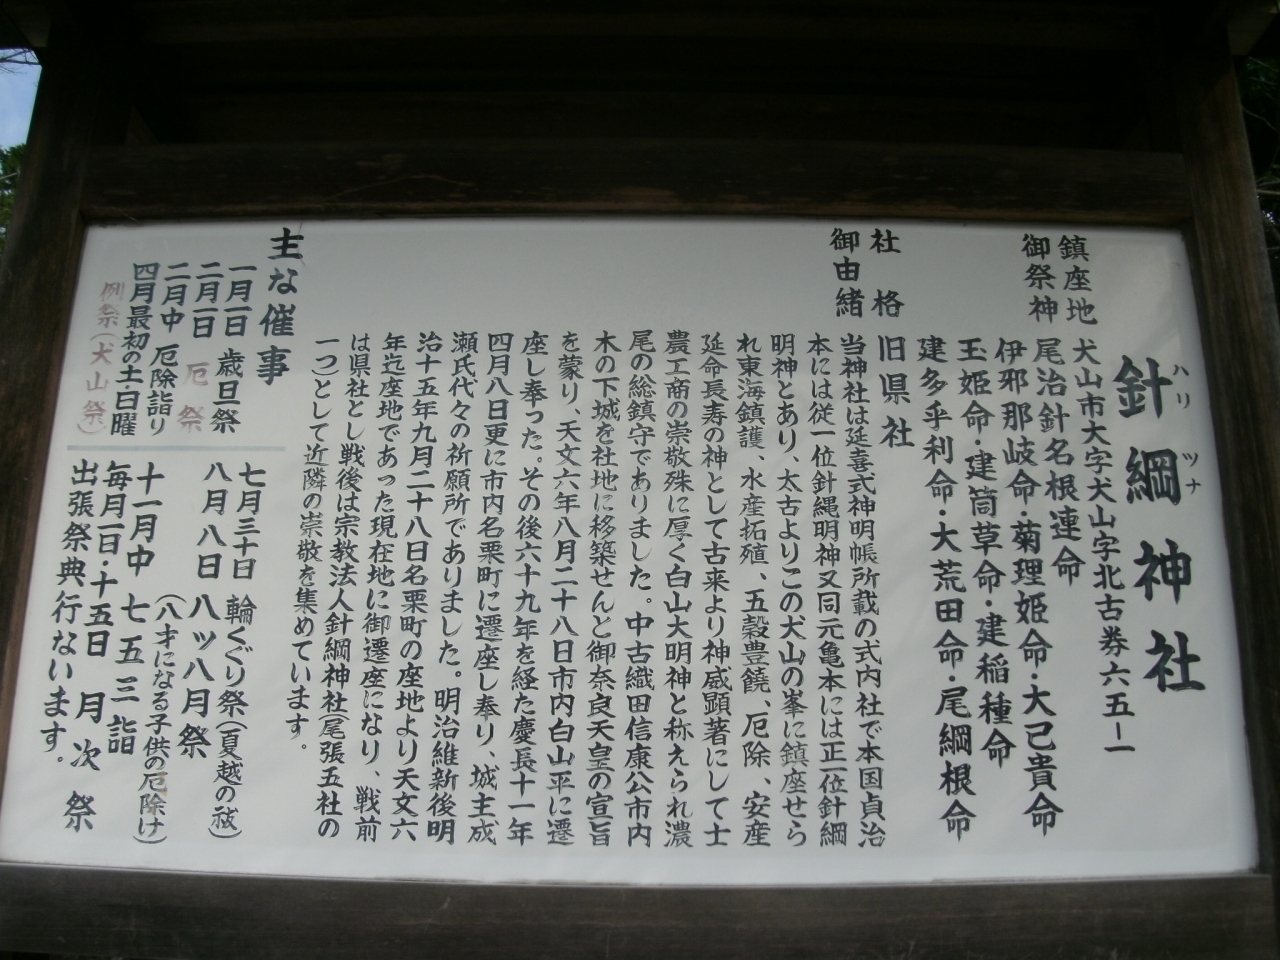 針綱神社
ハリ ツナ
鎮座地 犬山市大字犬山字北古券六五ー一
御祭神 尾治針名根連命
伊邪那岐命・菊理姫命・大己貴命
玉姫命・建筒草命・建稲種命
建多乎利命・大荒田命・尾綱根命
社格 旧県社
御由緒 当神社は延喜式神明帳所載の式内社で本国貞治
本には従一位針縄明神又同元亀本には正一位針綱
明神とあり、太古よりこの犬山の峯に鎮座せら
れ東海鎮護、水産拓殖、五穀豊饒、厄除、安産
延命長寿の神として古来より神威顕著にして士
農工商の崇敬殊に厚く白山大明神と称えられ濃
尾の総鎮守でありました。中古織田信康公市内
木の下城を社地に移築せんと御奈良天皇の宣旨
を蒙り、天文六年八月二十八日市内白山平に遷
座し奉った。その後六十九年を経た慶長十一年
四月八日更に市内名栗町に遷座し奉り、城主成
瀬氏代々の祈願所でありました。明治維新後明
治十五年九月二十八日名栗町の座地より天文六
年迄座地であった現在地に御遷座になり、戦前
は県社とし戦後は宗教法人針綱神社(尾張五社の
一つ)として近隣の崇敬を集めています。
主な催事
一月一日 歳旦祭
二月一日 厄祭
二月中 厄除詣り
四月最初の土日曜
例祭(犬山祭)
七月三十日 輪くぐり祭(夏越の祓)
八月八日 八ッ八月祭
(八才になる子供の厄除け)
十一月中 七五三詣
毎月一日・十五日 月次祭
出張祭典行ないます。